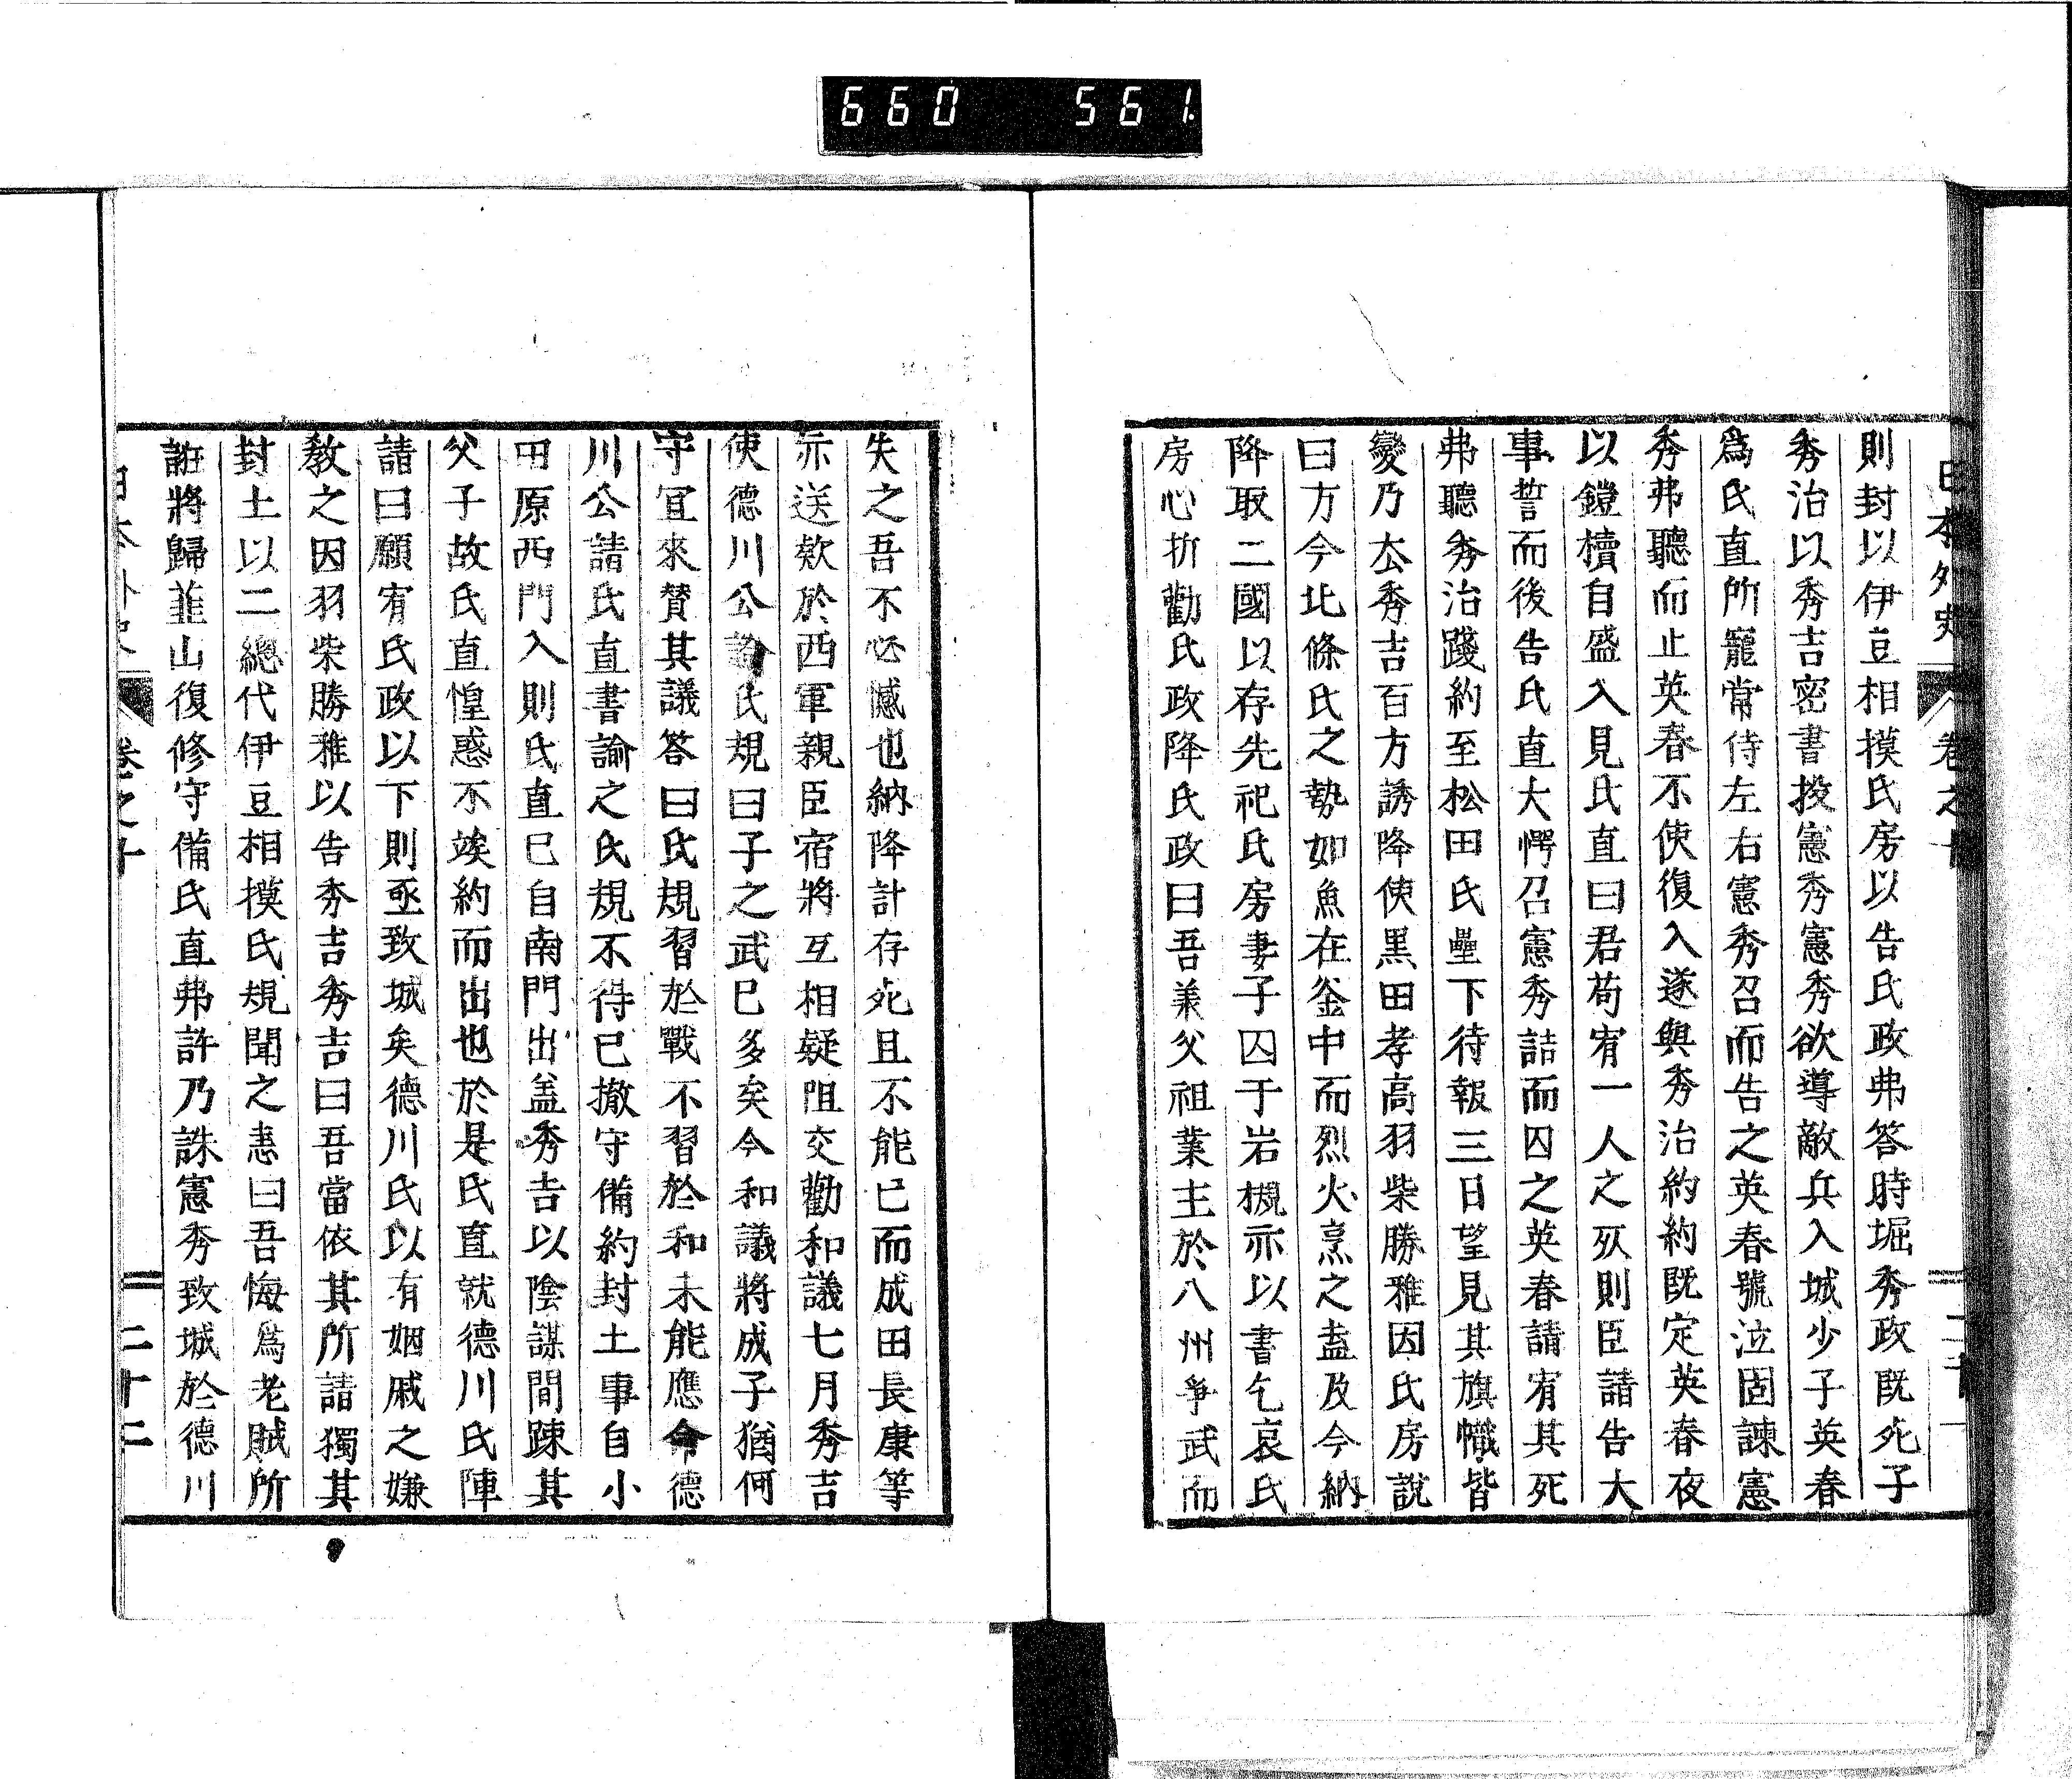 660 561
日本外史 卷之十
則封以伊豆相摸氏房以告氏政弗答時堀秀政既死子
秀治以秀吉密書投憲秀憲秀欲導敵兵入城少子英春
爲氏直所寵常侍左右憲秀召而告之英春號泣固諫憲
秀弗聽而止英春不使復入遂與秀治約約既定英春夜
以鎧櫝自盛入見氏直曰君苟宥一人之死則臣請告大
事誓而後告氏直大愕召憲秀詰而囚之英春請宥其死
弗聽秀治踐約至松田氏壘下待報三日望見其旗幟皆
變乃去秀吉百方誘降使黒田孝高羽柴勝雅因氏房說
曰方今北條氏之勢如魚在釜中而烈火烹之盍及今納
降取二國以存先祀氏房妻子囚于岩槻亦以書乞哀氏
房心折勸氏政降氏政曰吾業父祖業主於八州爭武而
失之吾不必憾也納降計存死且不能已而成田長康等
亦送欵於西軍親臣宿將互相疑阻交勸和議七月秀吉
使德川公諭氏規曰子之武已多矣今和議將成子猶何
守宜來賛其議答曰氏規習於戰不習於和未能應命德
川公請氏直書諭之氏規不得已撤守備約封土事自小
田原西門入則氏直已自南門出盖秀吉以陰謀間踈其
父子故氏直惶惑不竢約而出也於是氏直就德川氏陣
請曰願宥氏政以下則亟致城矣德川氏以有姻戚之嫌
敎之因羽柴勝雅以告秀吉秀吉曰吾當依其所請獨其
封土以二總代伊豆相摸氏規聞之恚曰吾悔爲老賊所
誑將歸韮山復修守備氏直弗許乃誅憲秀致城於德川
日本外史 卷之十 二十二